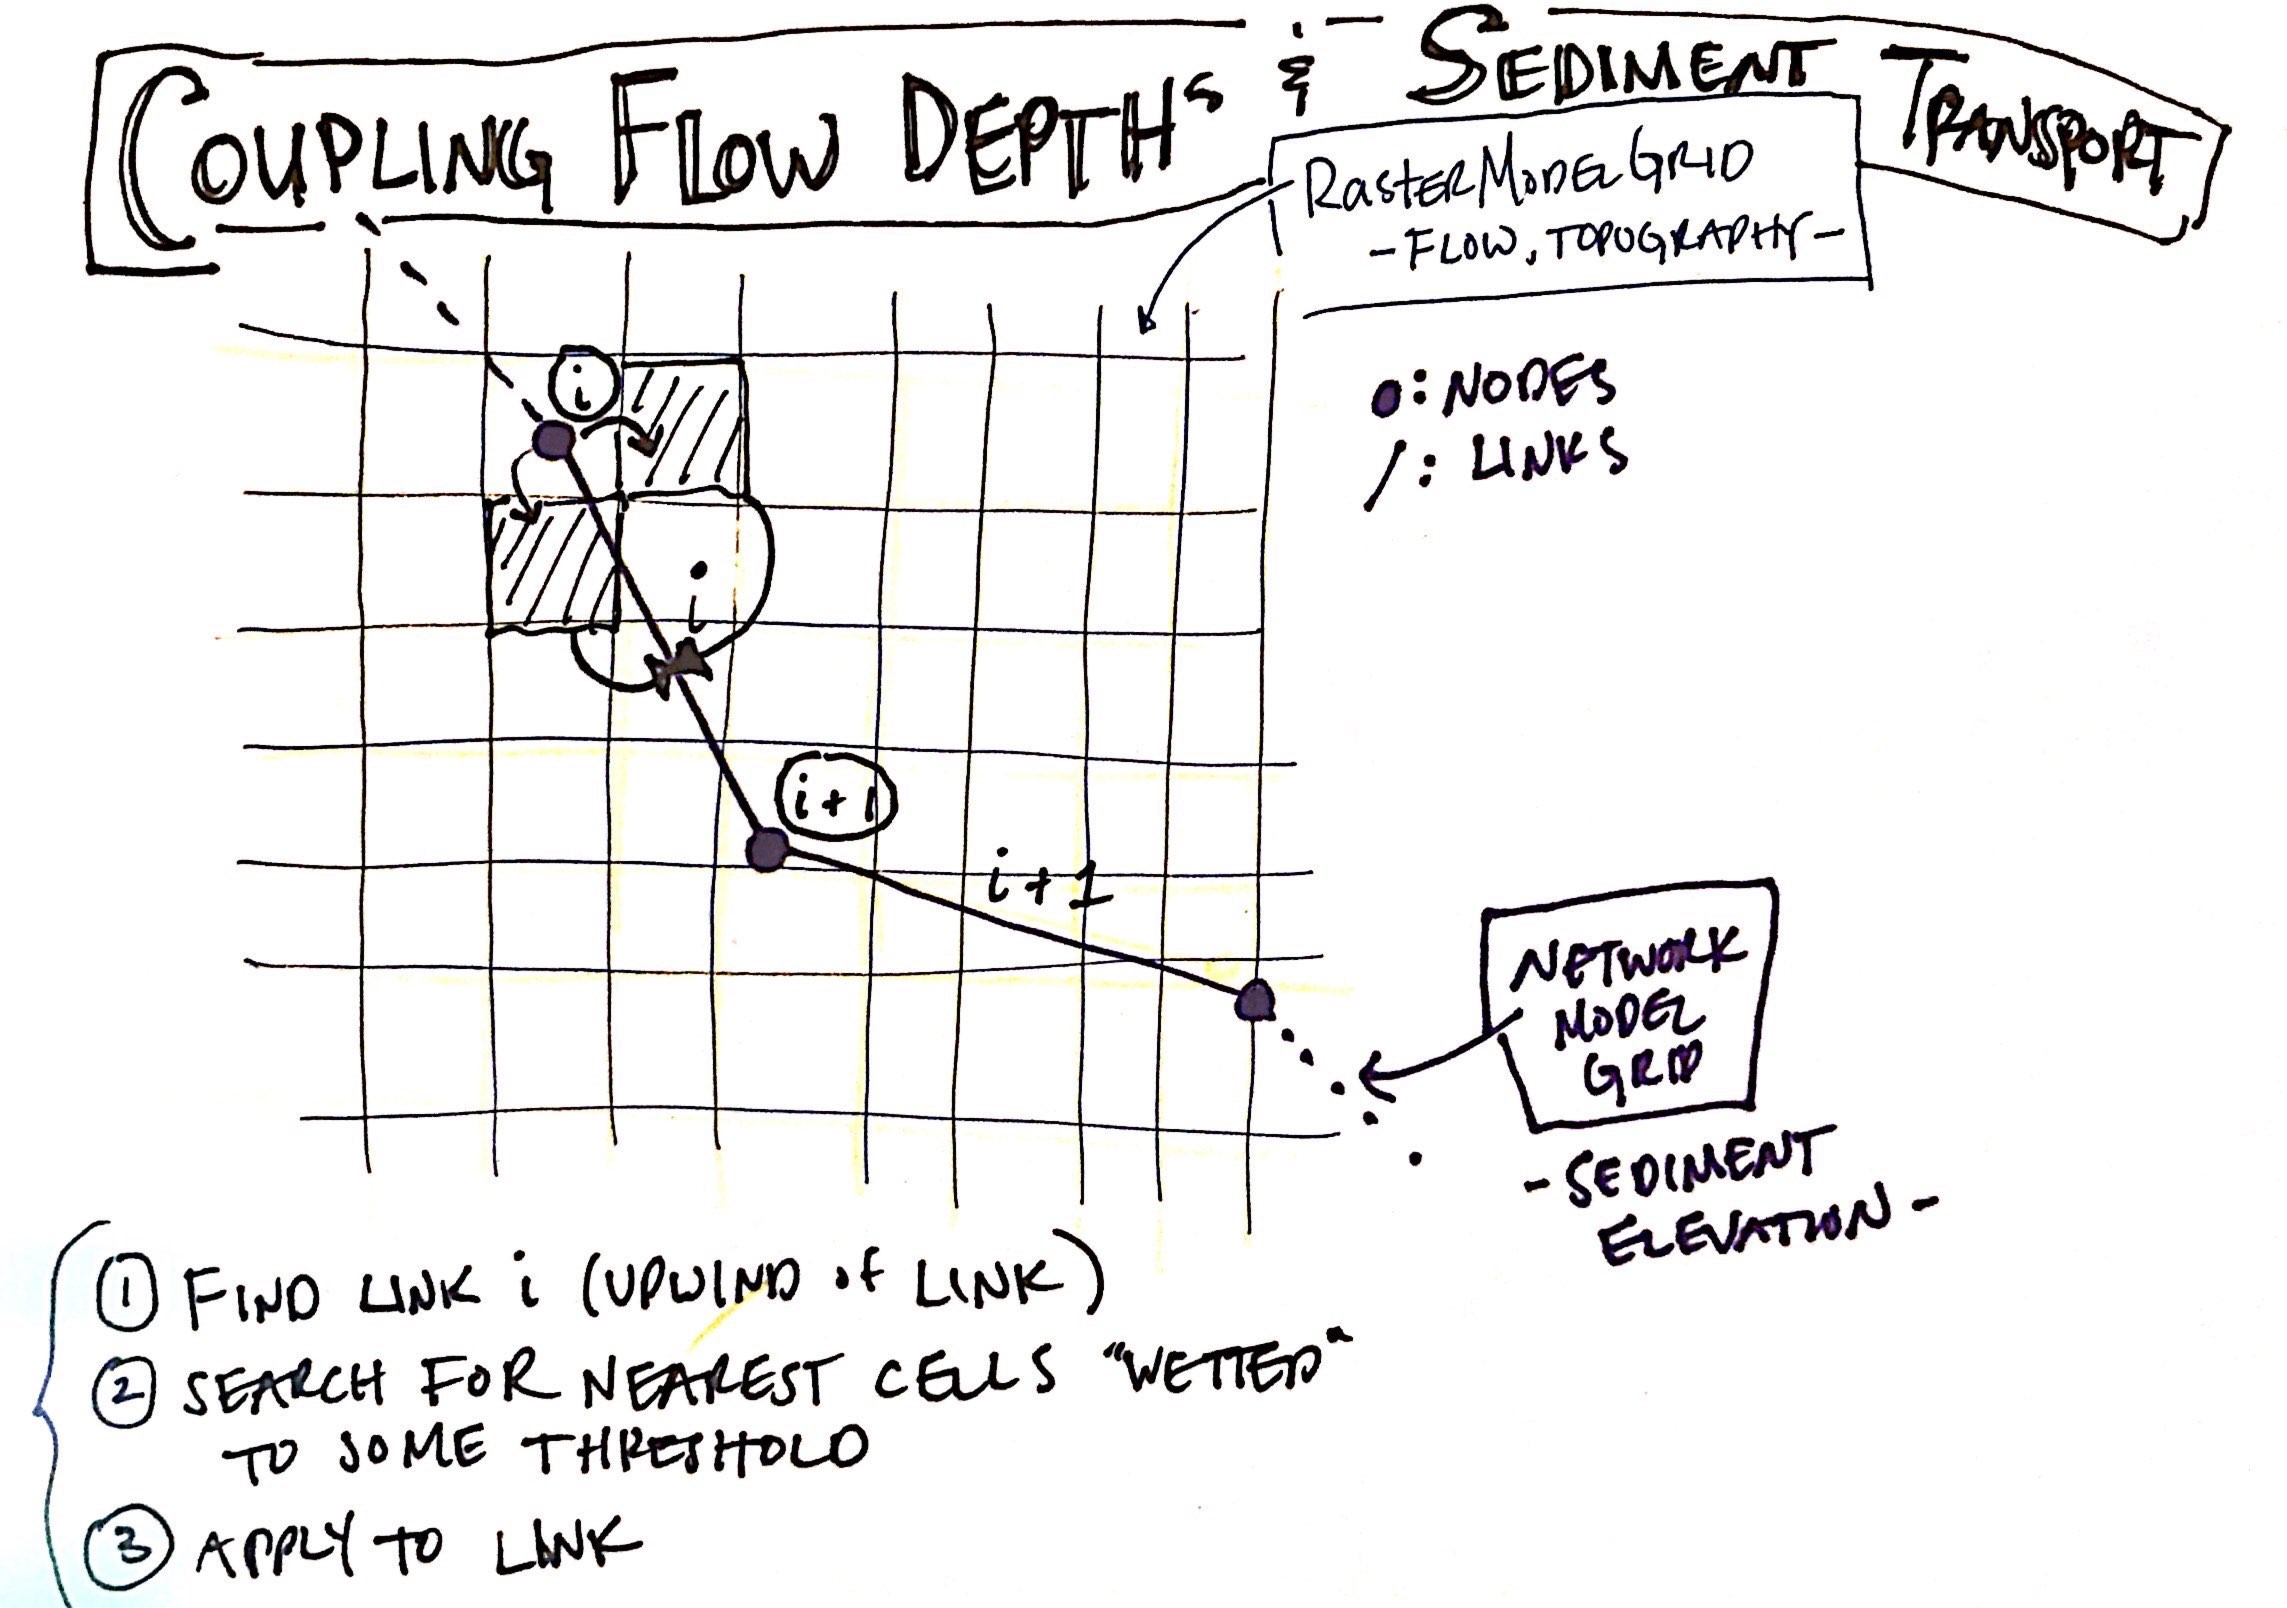 COUPLING FLOW DEPTHS & SEDIMENT TRANSPORT
RASTERMODELGRID
- FLOW, TOPOGRAPHY -
: NODES
/ : LINKS
i
i
i+1
i+1
NETWORK
MODEL
GRID
- SEDIMENT
ELEVATION -
1 FIND LINK i (UPWIND of LINK)
2 SEARCH FOR NEAREST CELLS "WETTED"
TO SOME THRESHOLD
3 APPLY TO LINK